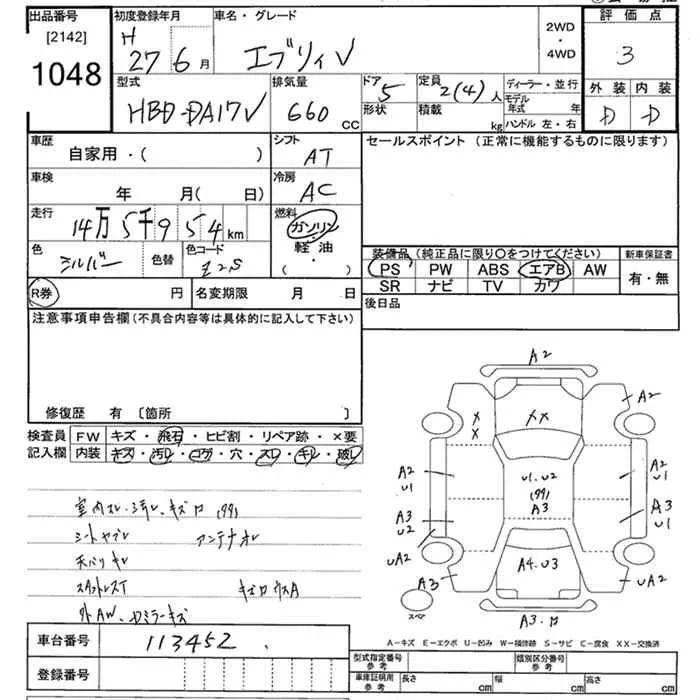 出品番号
[2142]
1048
初度登録年月
H 27 6月
車名・グレード
エブリィV
2WD・4WD
評価点
3
外装 内装
D D
型式
HBD-DA17V
排気量
660 CC
ドア 5
形状
定員 2(4)人
積載 kg
ディーラー・並行
モデル年式 年
ハンドル 左・右
車歴
自家用・( )
シフト
AT
セールスポイント (正常に機能するものに限ります)
車検
年 月( 日)
冷房
AC
走行
14万5千954km
燃料
ガソリン
軽油
( )
色
シルバー
色替
色コード
Z2S
装備品(純正品に限り○をつけてください)
新車保証書
PS PW ABS エアB AW
有・無
SR ナビ TV カワ
R券 円 名変期限 月 日
後日品
注意事項申告欄(不具合内容等は具体的に記入して下さい)
修復歴 有 〔箇所 〕
検査員 FW キズ・飛石・ヒビ割・リペア跡・×要
記入欄 内装 キズ・汚レ・コゲ・穴・スレ・キレ・破レ
室内スレ・汚レ・キズ
シートヤブレ アンテナオレ
天バリキレ
外AW
A2
A2
XX
X
X
A2
U1
U1.U2
(99)
A3
A2
U1
A3
U2
A3
U1
UA2
A3
A4.U3
UA2
スペア
A3.
A-キズ E-エクボ U-凹み W-補修跡 S-サビ C-腐食 XX-交換済
車台番号 113452
登録番号
型式指定番号 参考
類別区分番号 参考
車庫証明用 参考
長さ cm 幅 cm 高さ cm